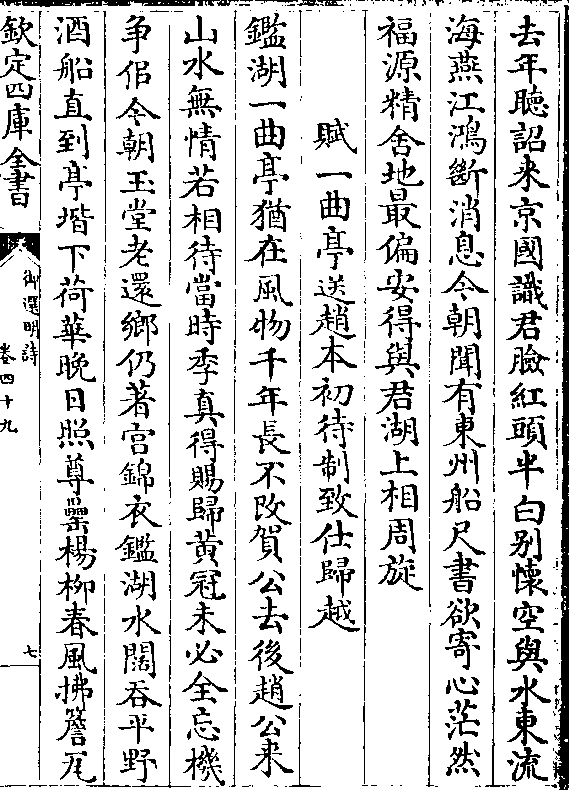 去年聽詔来京國識君臉紅頭半白别懷空與水東流
海燕江鴻斷消息今朝聞有東州船尺書欲寄心茫然
福源精舍地最偏安得與君湖上相周旋
賦一曲亭送趙本初待制致仕歸越
鑑湖一曲亭猶在風物千年長不改賀公去後趙公来
山水無情若相待當時季真得賜歸黄冠未必全忘機
争侣今朝玉堂老還鄉仍著宫錦衣鑑湖水闊吞平野
酒船直到亭堦下荷華晚日照尊罍楊柳春風拂簷瓦
欽定四庫全書
御選明詩
卷四十九
七